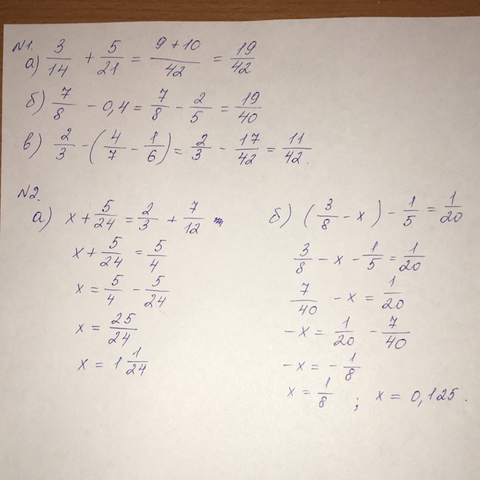 №1.
а) 3/14 + 5/21 = (9+10)/42 = 19/42
б) 7/8 - 0,4 = 7/8 - 2/5 = 19/40
в) 2/3 - (4/7 - 1/6) = 2/3 - 17/42 = 11/42.
№2.
а) x + 5/24 = 2/3 + 7/12
x + 5/24 = 5/4
x = 5/4 - 5/24
x = 25/24
x = 1 1/24
б) (3/8 - x) - 1/5 = 1/20
3/8 - x - 1/5 = 1/20
7/40 - x = 1/20
-x = 1/20 - 7/40
-x = - 1/8
x = 1/8 ; x = 0,125.